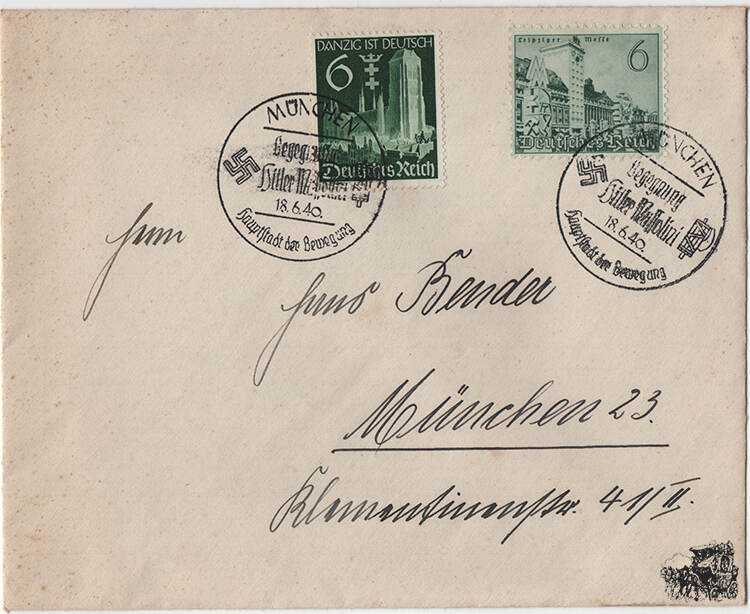 DANZIG IST DEUTSCH
6
Deutsches Reich
Leipziger Messe
6
Deutsches Reich
MÜNCHEN
Begegnung
Hitler Mussolini
18.6.40.
Hauptstadt der Bewegung
MÜNCHEN
Begegnung
Hitler Mussolini
18.6.40.
Hauptstadt der Bewegung
Herrn
Hans Bender
München 23.
Klementinenstr. 41/II.